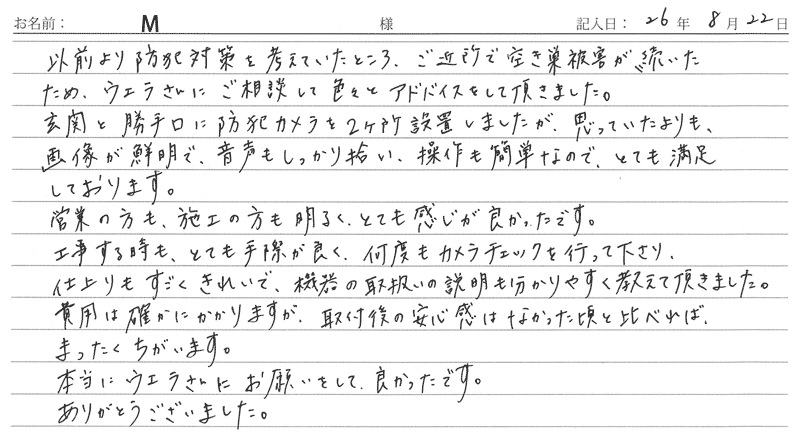 お名前： M 様 記入日： 26 年 8 月 22 日
以前より防犯対策を考えていたところ、ご近所で空き巣被害が続いた
ため、ウエラさんにご相談して色々とアドバイスをして頂きました。
玄関と勝手口に防犯カメラを2ヶ所設置しましたが、思っていたよりも、
画像が鮮明で、音声もしっかり拾い、操作も簡単なので、とても満足
しております。
営業の方も、施工の方も明るく、とても感じが良かったです。
工事する時も、とても手際が良く、何度もカメラチェックを行って下さり、
仕上りもすごくきれいで、機器の取扱いの説明も分かりやすく教えて頂きました。
費用は確かにかかりますが、取付後の安心感はなかった頃と比べれば、
まったくちがいます。
本当にウエラさんにお願いをして、良かったです。
ありがとうございました。